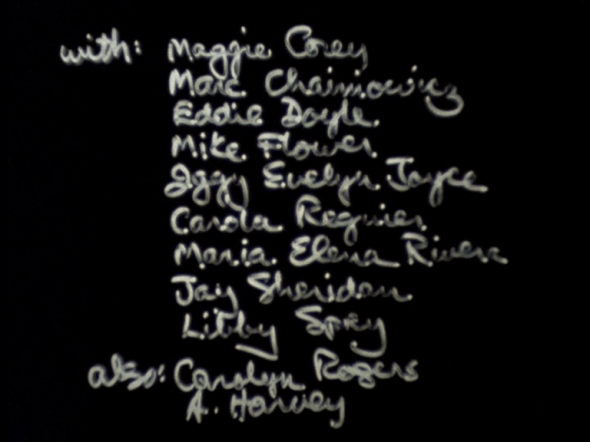 with: Maggie Corey
Marc Chaimowicz
Eddie Doyle
Mike Flower
Iggy Evelyn Joyce
Carola Regnier
Maria Elena Rivera
Jay Sheridan
Libby Spry
also: Carolyn Rogers
A. Harvey